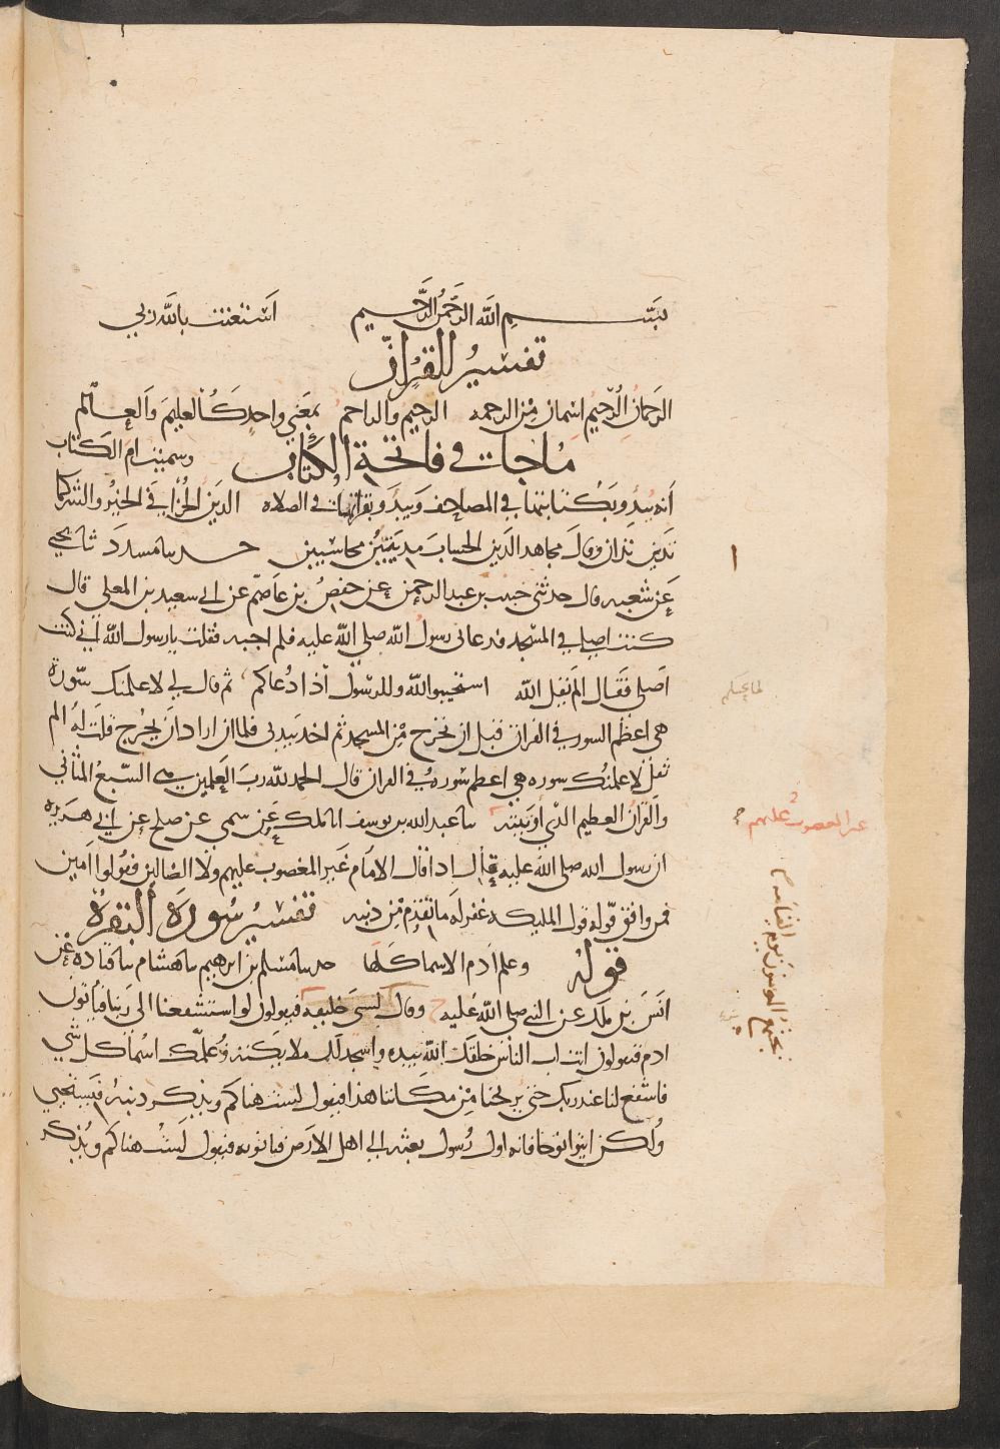 بسم الله الرحمن الرحيم استعنت بالله ربي
تفسير القران
الرحمان الرحيم اسمان من الرحمه الرحيم والراحم بمعني واحد كالعليم والعالم
ما جاء في فاتحة الكتاب وسميت ام الكتاب
انه يبدو بكتابتها في المصاحف ويبدو بقرانها في الصلاه الدين الجزا في الخير والشر كما
تدين تدان وقال مجاهد بالدين الحساب مدينين محاسبين حدثنا مسدد ثنا يحيي
عن شعبه قال حدثني خبيب بن عبد الرحمن عن حفص بن عاصم عن ابي سعيد بن المعلي قال
كنت اصلي في المسجد فدعاني رسول الله صلي الله عليه فلم اجبه فقلت يا رسول الله اني كنت
اصلي فقال الم يقل الله استجيبوا لله وللرسول اذا دعاكم ثم قال لي لاعلمنك سورة
هي اعظم السور في القران قبل ان تخرج من المسجد ثم اخذ بيدي فلما ان اراد ان يخرج قلت له الم
تقل لاعلمنك سوره هي اعظم سورة في القران قال الحمد لله رب العلمين هي السبع المثاني
والقران العظيم الذي اوتيته نا عبد الله بن يوسف انا ملك عن سمي عن صلح عن ابي هريره
ان رسول الله صلي الله عليه قال اذا قال الامام غير المغضوب عليهم ولا الضالين فقولوا امين
فمن وافق قوله قول المليكه غفر له ما تقدم من ذنبه تفسير سورة البقرة
قوله وعلم ادم الاسما كلها حدثنا مسلم بن ابرهيم نا هشام نا قتاده عن
انس بن ملك عن النبي صلي الله عليه وقال لي خليفه فيقولون لو استشفعنا الي ربنا فيأتون
ادم فيقولون انت اب الناس خلقك الله بيده واسجد لك ملايكته وعلمك اسما كل شي
فاشفع لنا عند ربك حتي يريحنا من مكاننا هذا فيقول لست هناكم ويذكر ذنبه فيستحيي
ولكن ايتوا نوحا فانه اول رسول بعثه الي اهل الارض فياتونه فيقول لست هناكم ويذكر
لما يحييكم
غير المغضوب عليهم
يجتمع المومنون يوم القيامه